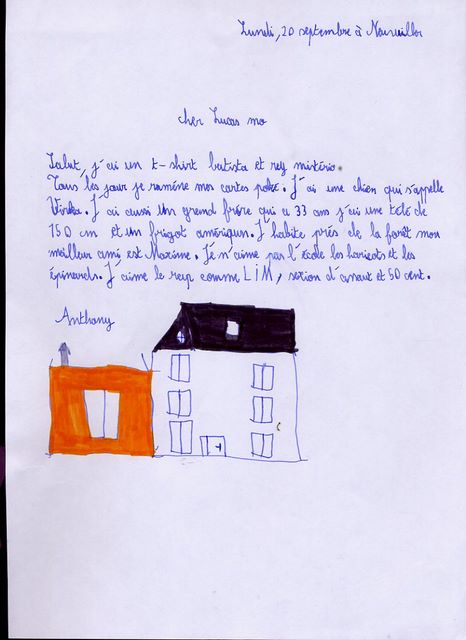 Lundi, 20 septembre à
cher Lucas mo
Salut, j'ai un t-shirt batista et rey mistério.
Tous les jour je ramène mes cartes poké. J'ai une chien qui s'appelle
J'ai aussi un grand frère qui a 33 ans j'ai une télé de
150 cm et un frigot amériquen. J'habite près de la forêt mon
meilleur ami est Maxime. Je n'aime pas l'école les haricots et les
épinards. J'aime le rap comme LIM, sexion d'assaut et 50 cent.
Anthony